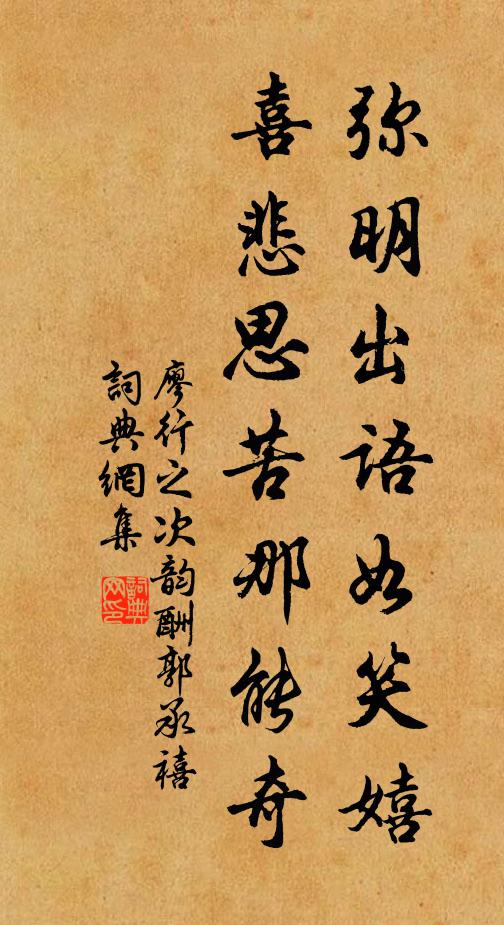 弥明出语如笑嬉
喜悲思苦那能奇
廖行之次韵酬郭承禧
词典網集